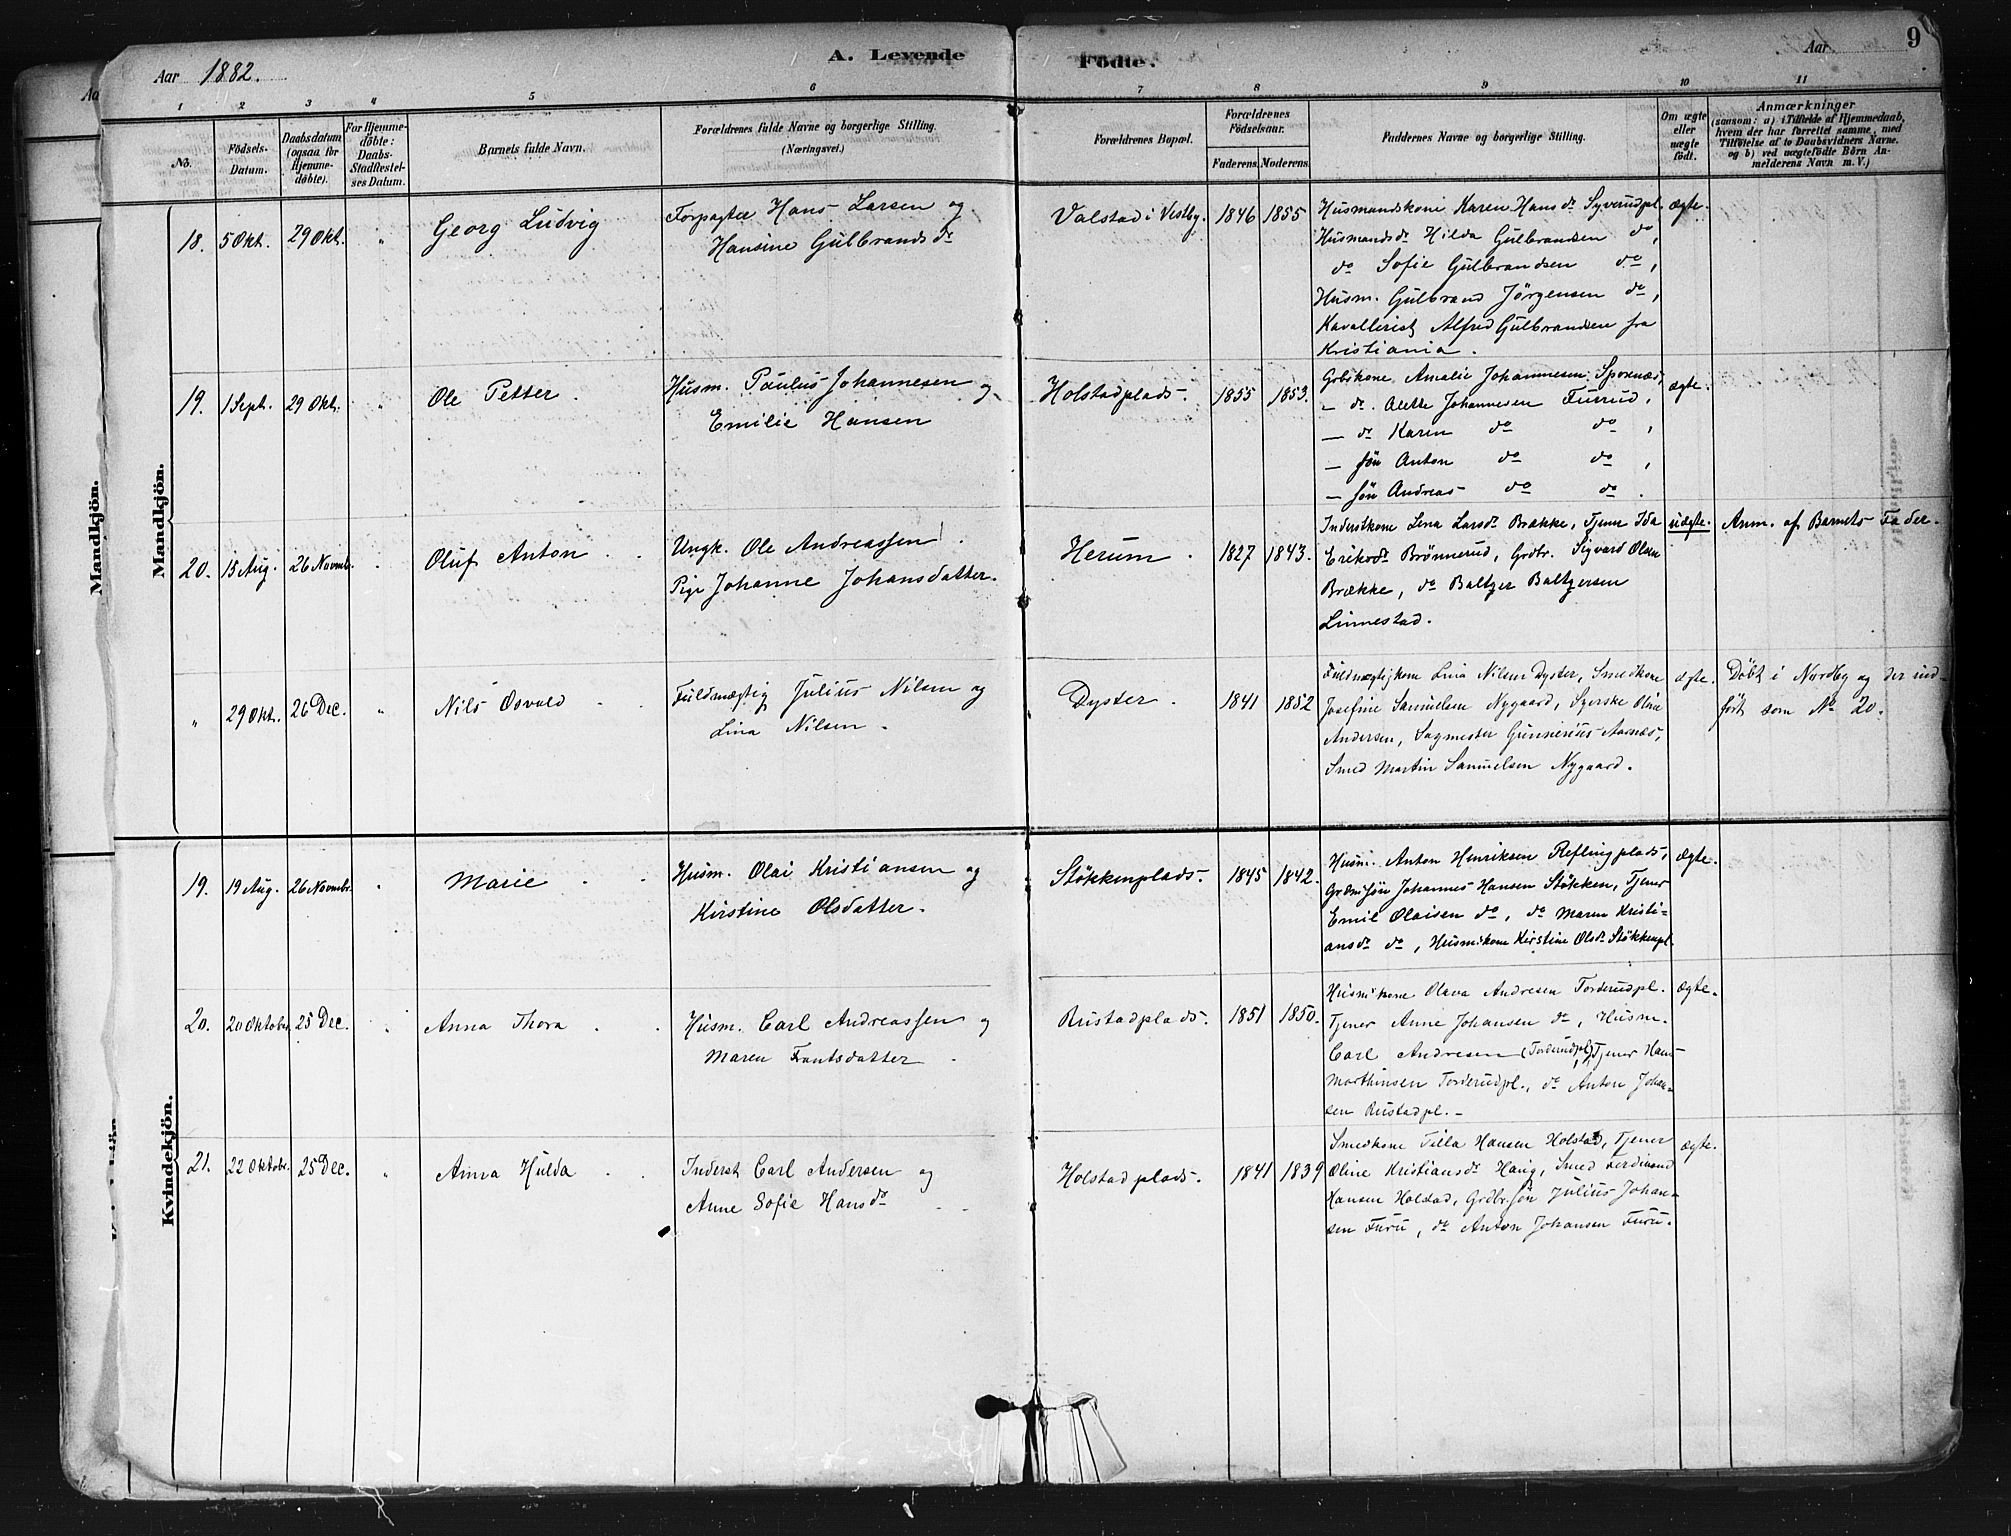 Aar 1882.
A. Levende
Födte.
Aar
9
1 2 3 4 5 6 7 8 9 10 11
No.
Födsels-Datum.
Daabsdatum (ogsaa for Hjemmedöbte).
For Hjemmedöbte: Daabs-Stadfæstelses Datum.
Barnets fulde Navn.
Forældrenes fulde Navne og borgerlige Stilling.
(Næringsvei.)
Forældrenes Bopæl.
Forældrenes Födselsaar.
Faderens. Moderens.
Faddernes Navne og borgerlige Stilling.
Om ægte eller uægte födt.
Anmærkninger
(saasom: a) i Tilfælde af Hjemmedaab,
hvem der har forrettet samme, med
Tilföielse af to Daabsvidners Navne.
og b) ved uægtefödte Börn An-
melderens Navn m. V.)
Mandkjön.
Mandkjön.
18. 5 Okt. 29 Okt. " Georg Ludvig
Forpagter Hans Larsen og
Hansine Gulbrandsdr
Valstad i Vestby. 1846 1855
Husmandskone Karen Hansdr Syverudpl.
Husmandsdr Hilda Gulbrandsen do,
do Sofie Gulbrandsen do,
Husm. Gulbrand Jörgensen do,
Kavallerist Alfred Gulbrandsen fra
Kristiania.
ægte.
19. 1 Sept. 29 Okt. " Ole Petter.
Husm. Paulus Johannesen og
Emilie Hansen
Holstadplads. 1855 1853.
Gbrkone Amalie Johannesen Sponnæs,
— dr. Alette Johannesen Furrud,
— dr Karen do do,
— sön Anton do do,
— sön Andreas do do.
ægte.
20. 15 Aug. 26 Novmb. . Oluf Anton .
Ungk. Ole Andreassen .
Pige Johanne Johansdatter.
Herum. 1827 1843.
Inderstkone Lina Larsdr Brække, Tjener Ida
Eriksdr Brönnerud, Grdbr. Sigvard Olsen
Brække, do Baltzer Baltzersen
Linnestad.
uægte. Anm. af Barnets Fader.
" 29 Okt. 26 Dec. " Nils Osvald .
Fuldmægtig Julius Nilsen og
Lina Nilsen.
Dyster. 1841 1852
Fuldmægtigkone Lina Nilsen Dyster, Smedkone
Josefine Samuelsen Nygaard, Syerske Oline
Andersen, Sagmester Gunnerius Aarnæs,
Smed Martin Samuelsen Nygaard.
ægte.
Döbt i Nordby og der ind-
fört som No 20.
Kvindekjön.
19. 19 Aug. 26 Novmbr. " Marie .
Husm. Olai Kristiansen og
Kirstine Olsdatter.
Stökkenplads. 1845 1842.
Husm. Anton Henriksen Reflingplads,
Grdmsön Johannes Hansen Stökken, Tjener
Emil Olaisen do, do Maren Kristi-
ansdr do, Husmskone Kirstine Olsdr Stökkenpl.
ægte.
20. 20 Oktober 25 Dec. " Anna Thora .
Husm. Carl Andreassen og
Maren Frantsdatter .
Rustadplads. 1851 1850.
Husmskone Olava Andresen Torderudpl.
Tjener Anne Johansen do, Husm.
Carl Andresen (Torderudpl), Tjener Hans
Marthinsen Torderudpl., do Anton Johan-
sen Rustadpl.
ægte.
21. 22 Oktobr. 25 Dec. " Anna Hulda .
Inderst Carl Andersen og
Anne Sofie Hansdr
Holstadplads. 1841 1839
Smedkone Tilla Hansen Holstad, Tjener
Oline Kristiansdr Haug, Smed Ferdinand
Hansen Holstad, Grdbr.sön Julius Johan-
sen Furu, do Anton Johansen Furu.
ægte.